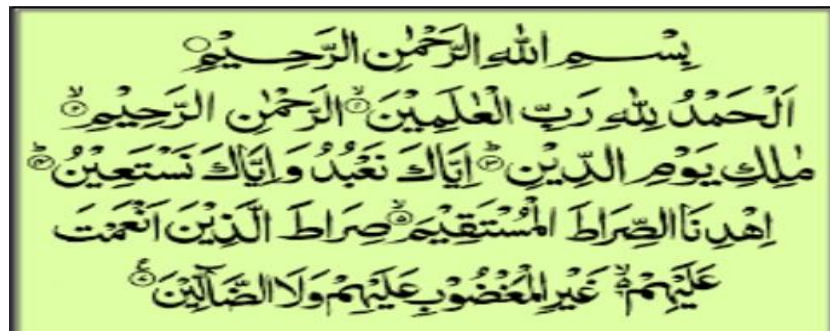 بِسْمِ اللّٰهِ الرَّحْمٰنِ الرَّحِيْمِ
اَلْحَمْدُ لِلّٰهِ رَبِّ الْعٰلَمِيْنَ ۙ﴿۱﴾ الرَّحْمٰنِ الرَّحِيْمِ ۙ﴿۲﴾
مٰلِكِ يَوْمِ الدِّيْنِ ؕ﴿۳﴾ اِيَّاكَ نَعْبُدُ وَاِيَّاكَ نَسْتَعِيْنُ ؕ﴿۴﴾
اِهْدِنَا الصِّرَاطَ الْمُسْتَقِيْمَ ۙ﴿۵﴾ صِرَاطَ الَّذِيْنَ اَنْعَمْتَ
عَلَيْهِمْ ۙ۬ غَيْرِ الْمَغْضُوْبِ عَلَيْهِمْ وَلَا الضَّآلِّيْنَ